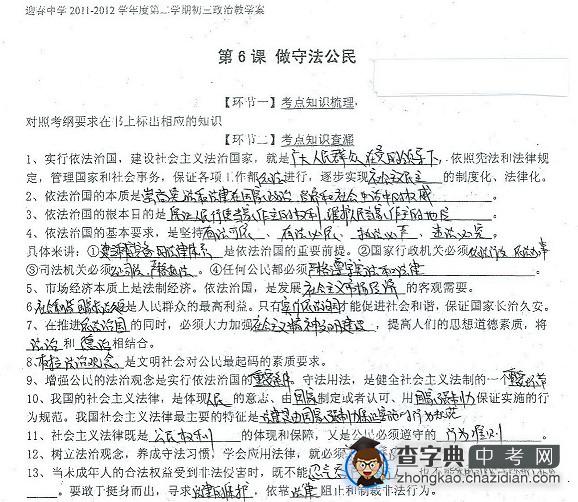 迎春中学2011-2012学年度第二学期初三政治教学案
第6课 做守法公民
【环节一】考点知识梳理
对照考纲要求在书上标出相应的知识
【环节二】考点知识查漏
1、实行依法治国，建设社会主义法治国家，就是广大人民群众在党的领导下，依照宪法和法律规
定，管理国家和社会事务，保证各项工作都依法进行，逐步实现社会主义民主的制度化、法律化。
2、依法治国的本质是崇尚宪法和法律在国家政治、经济和社会生活中的权威
3、依法治国的根本目的是保证人民行使当家作主的权利，维护人民当家作主的地位
4、依法治国的基本要求，是坚持有法可依、有法必依、执法必严、违法必究
具体来讲：①是依法治国的重要前提。②国家行政机关必须依法行政
③司法机关必须公正司法，严格执法④任何公民都必须严格遵守宪法和法律
5、市场经济本质上是法制经济。依法治国，是发展社会主义市场经济的客观需要。
6、是人民群众的最高利益。只有实行依法治国才能促进社会和谐，保证国家长治久安。
7、在推进依法治国的同时，必须大力加强社会主义精神文明建设，提高人们的思想道德素质，将
法治和德治相结合。
8、树立法治观念是文明社会对公民最起码的素质要求。
9、增强公民的法治观念是实行依法治国的重要条件。守法用法，是健全社会主义法制的一个重要环节
10、我国的社会主义法律，是体现人民的意志、由国家制定或者认可、用国家强制力保证实施的行
为规范。我国社会主义法律最主要的特征是法律是由国家强制力保证实施的行为规范
11、社会主义法律既是公民权利的体现和保障，又是公民必须遵守的行为准则
12、树立法治观念，养成守法习惯，学会应用法律，就必须
13、当未成年人的合法权益受到非法侵害时，既不能忍气吞声
，要敢于挺身而出，寻求法律的维护，依靠法律阻止和制裁非法行为。
查字典中考网
zhongkao.chazidian.com